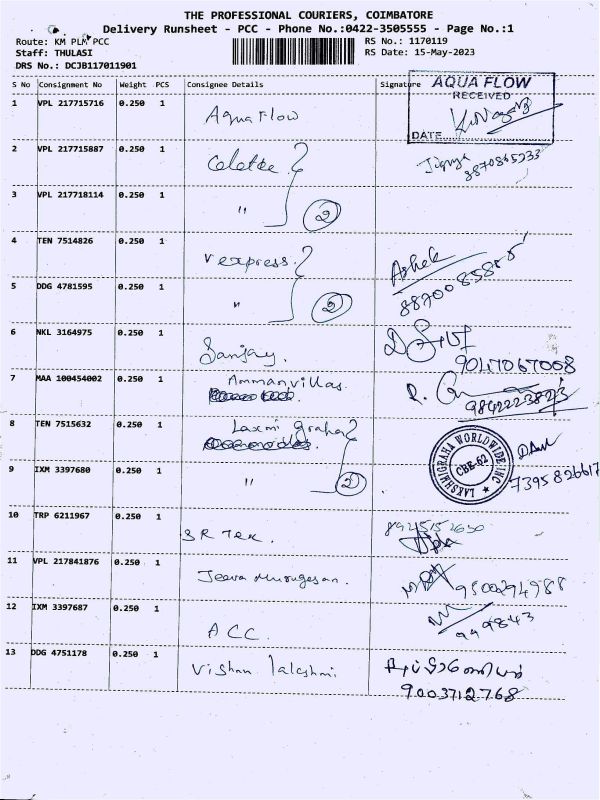 THE PROFESSIONAL COURIERS, COIMBATORE
Delivery Runsheet - PCC - Phone No.:0422-3505555 - Page No.:1
Route: KM PLM PCC
RS No.: 1170119
Staff: THULASI
RS Date: 15-May-2023
DRS No.: DCJB117011901
S No Consignment No Weight PCS Consignee Details Signature
AQUA FLOW
RECEIVED
DATE
1 VPL 217715716 0.250 1 Aqua Flow
2 VPL 217715887 0.250 1
3 VPL 217718114 0.250 1 " 2
4 TEN 7514826 0.250 1 V express. Ashok
5 DDG 4781595 0.250 1 " 2
6 NKL 3164975 0.250 1 Sanjay.
9047067008
7 MAA 100454002 0.250 1 Ammanvillas.
9842223823
8 TEN 7515632 0.250 1 Laxmi graha
LAKSHMIGRAHA WORLDWIDE INC
CBE-62
9 IXM 3397680 0.250 1 " 2
10 TRP 6211967 0.250 1 SR Tex.
11 VPL 217841876 0.250 1 Jeeva Murugesan. 9500294988
12 IXM 3397687 0.250 1 ACC. 999843
13 DDG 4751178 0.250 1 Vishnu lakshmi
9003712768